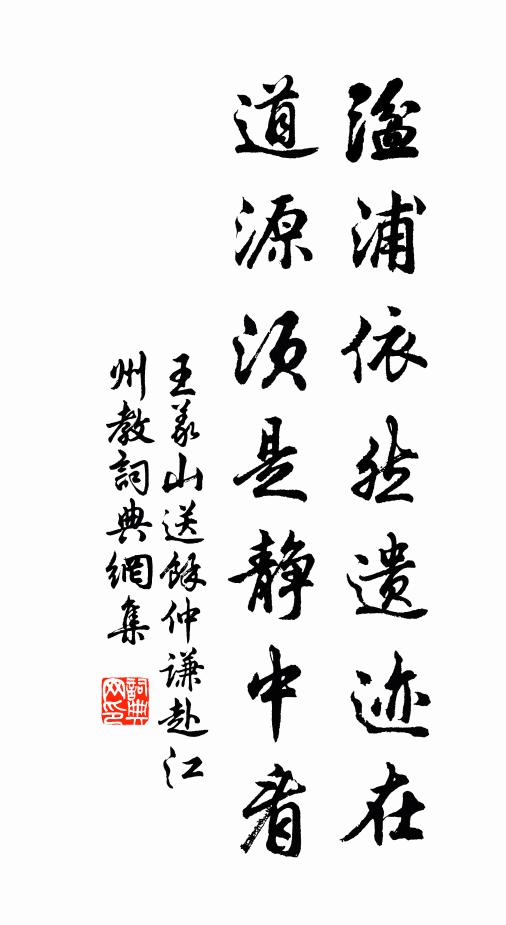 溢浦依然遗迹在
道源须是静中看
王义山送馀仲谦赴江
州教詞典網集
詞典网印